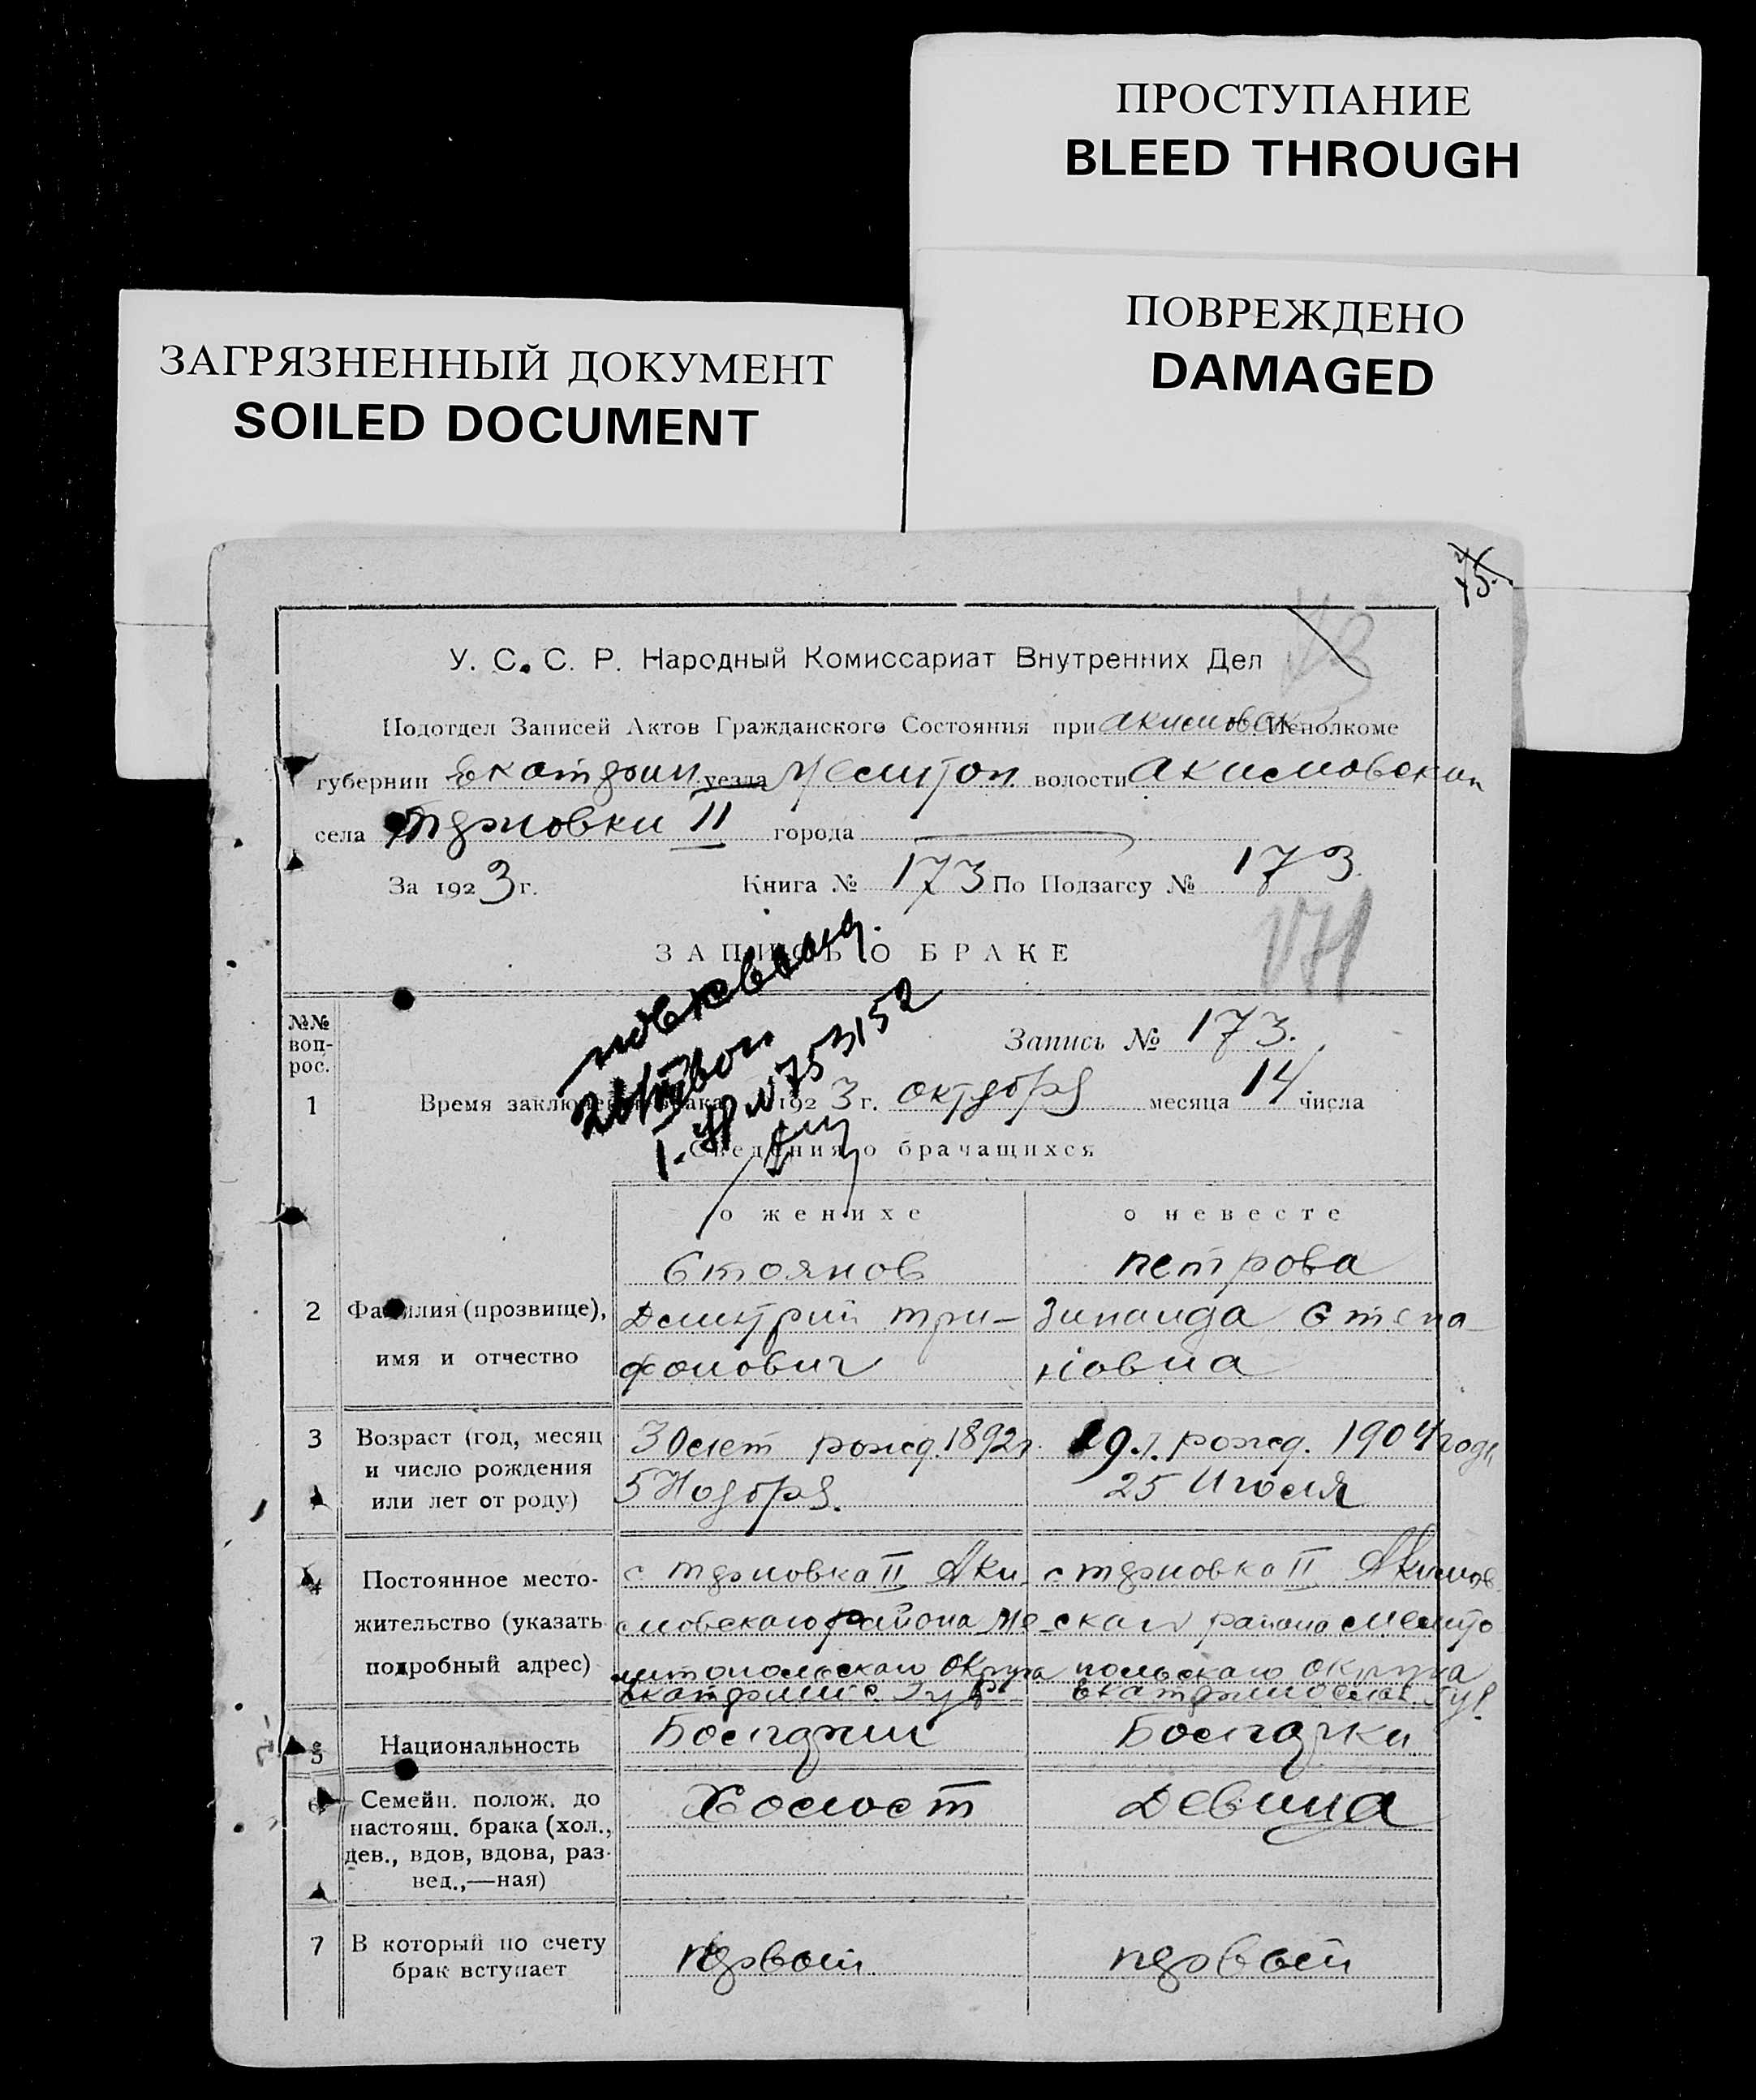 ПРОСТУПАНИЕ
BLEED THROUGH
ПОВРЕЖДЕНО
DAMAGED
ЗАГРЯЗНЕННЫЙ ДОКУМЕНТ
SOILED DOCUMENT
75.
У. С. С. Р. Народный Комиссариат Внутренних Дел
Подотдел Записей Актов Гражданского Состояния при Акимовск Исполкоме
губернии Екатерин уезда Мелитоп. волости Акимовский
села Терновки II города
За 1923 г. Книга № 173 По Подзагсу № 173
ЗАПИСЬ О БРАКЕ
№№ воп-рос.
Запись № 173.
1 Время заключения брака 1923 г. октября месяца 14 числа
№ 753152
Сведения о брачащихся
о женихе о невесте
Стоянов Петрова
2 Фамилия (прозвище), Дмитрий Три- Зинаида Степа
имя и отчество фонович новна
3 Возраст (год, месяц 30 лет рожд. 1892 г. 19 л. рожд. 1904 года
и число рождения 5 Ноября. 25 Июля
или лет от роду)
4 Постоянное место- с Терновка II Аки с Терновка II Акимов
жительство (указать мовского района Ме- ского района Мелито
подробный адрес) литопольского округа польского округа
Екатеринс. Губ Екатеринослав. Губ.
5 Национальность Болгарин Болгарка
6 Семейн. полож. до Холост Девица
настоящ. брака (хол.,
дев., вдов, вдова, раз-
вед.,—ная)
7 В который по счету первый первый
брак вступает